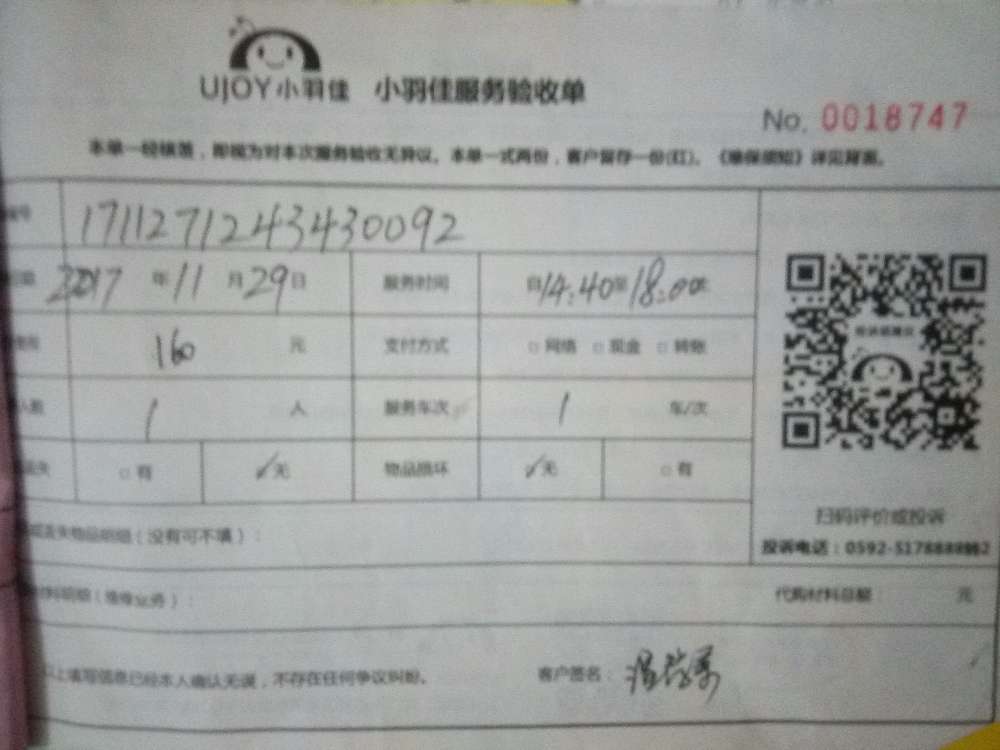 UJOY小羽佳 小羽佳服务验收单
No. 0018747
本单一经核签，即视为对本次服务验收无异议。本单一式两份，客户留存一份(红)。《维保须知》详见背面。
号 1711271243430092
2017 年 11 月 29 日 服务时间 自 14:40 至 18:00
160 元 支付方式 □ 网络 □ 现金 □ 转账
1 人 服务车次 1 车/次
□ 有 ✓无 物品损坏 ✓无 □ 有
物品明细（没有可不填）：
扫码评价或投诉
投诉电话：0592-5178888
材料明细（维修业务）： 代购材料总额 元
以上填写信息已经本人确认无误，不存在任何争议纠纷。 客户签名：